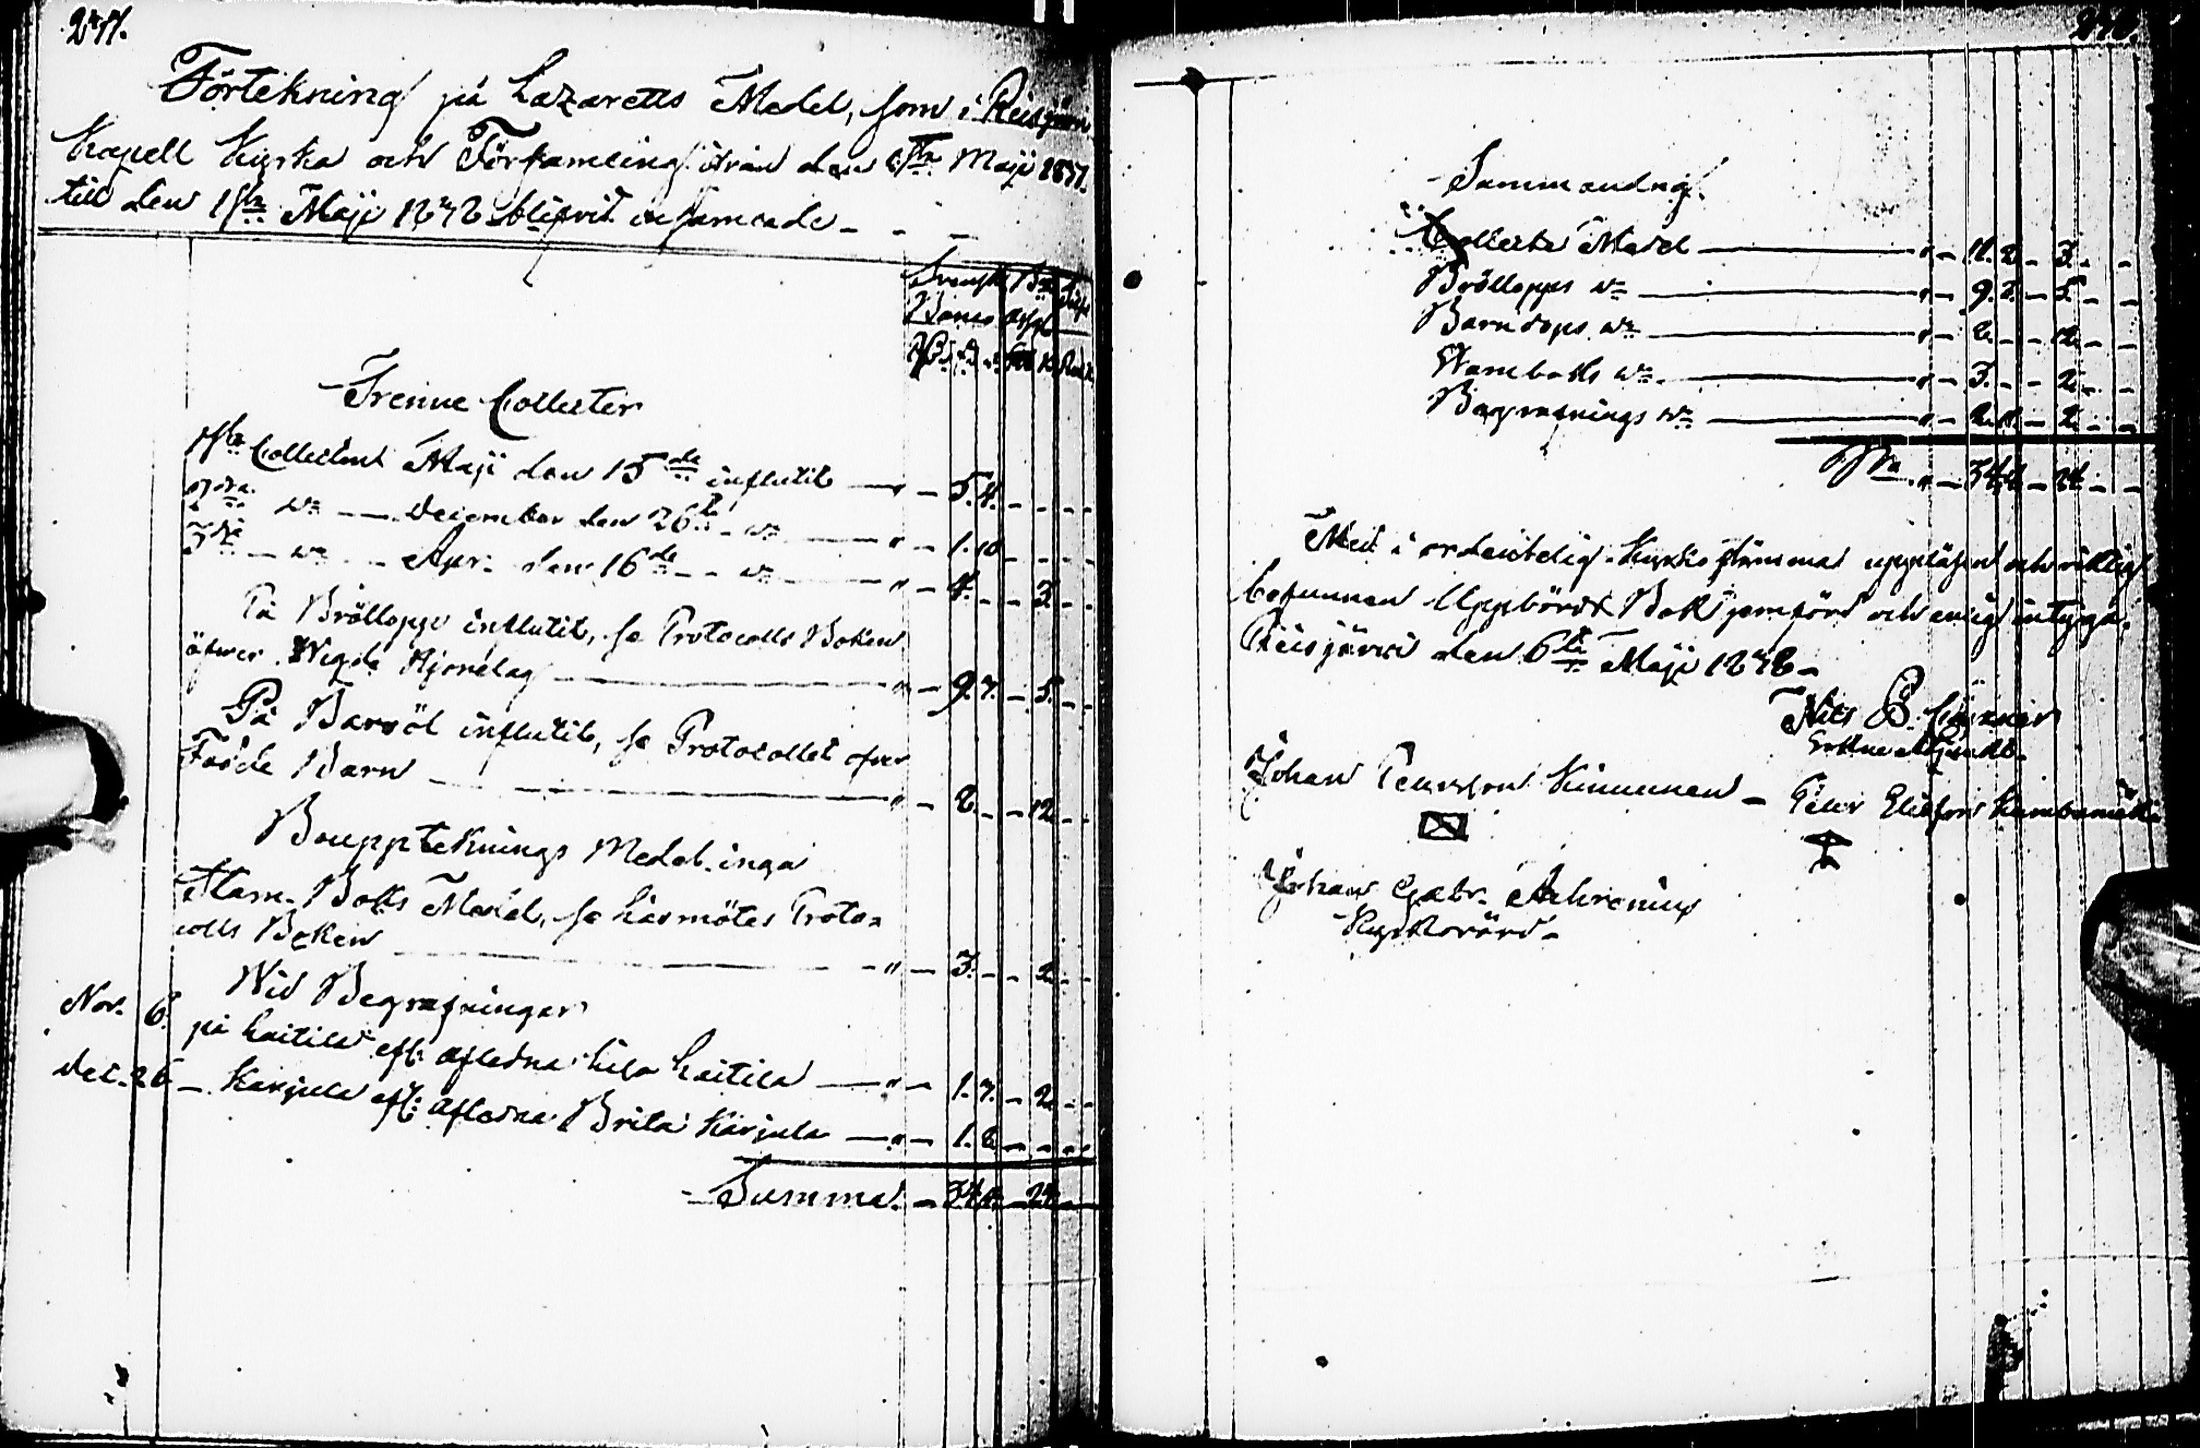 Förtekning på Lazaretts Medel, som i Reisjärvi
Kapell Kyrka och Församling ifrån den 1sta Maji 1841
till den 1sta Maji 1842 blifvit insamlade -
Svensk
Banco
Trenne Collecter
1sta Collecten Maji den 15de influtit — " - 5. 4. - - -
2dra do — December den 26te - do — " - 1. 10 - - -
3die - do - - Apr. den 16de - - do — " - 4. - - 3. - -
På Bröllopp influtit, se Protocolls Boken
öfwer Wigde Hjonelag — " - 9. 7. - 5. - -
På Barsöl influtit, se Protocollet öfver
Födde Barn — " - 8. - - 12. - -
Bouppteknings Medel inga
Stam-Boks Medel, se Läsmötes Proto=
colls Boken — " - 3. - - 2. - -
Wid Begrafningar
Nov. 6. på Laitila eft: aflidna Lisa Laitila — " - 1. 7. - 2. - -
Dec. 26 - Karjula eft: aflidna Brita Karjula — " - 1. 8 - - -
Summa. - 34. - 24
Sammandrag.
Collecte Medel — " - 11. 2. - 3. - -
Bröllopps do — " - 9. 7. - 5. - -
Barndops do — " - 8. - - 12. - -
Stamboks do — " - 3. - - 2. - -
Begrafnings do — " - 2. - 2. - -
Sa " - 34. - 24. - -
Med i ordentelig Kyrkostämma uppläsen och riktig
befunnen Uppbörds Bok jemförd och enlig intyga,
Reisjärvi den 6te Maji 1842 -
Nils B.
Johan Pehrsson Kinnunen - Peter Eliasson
Johan Gabr. Achrenius
Kyrkovärd -